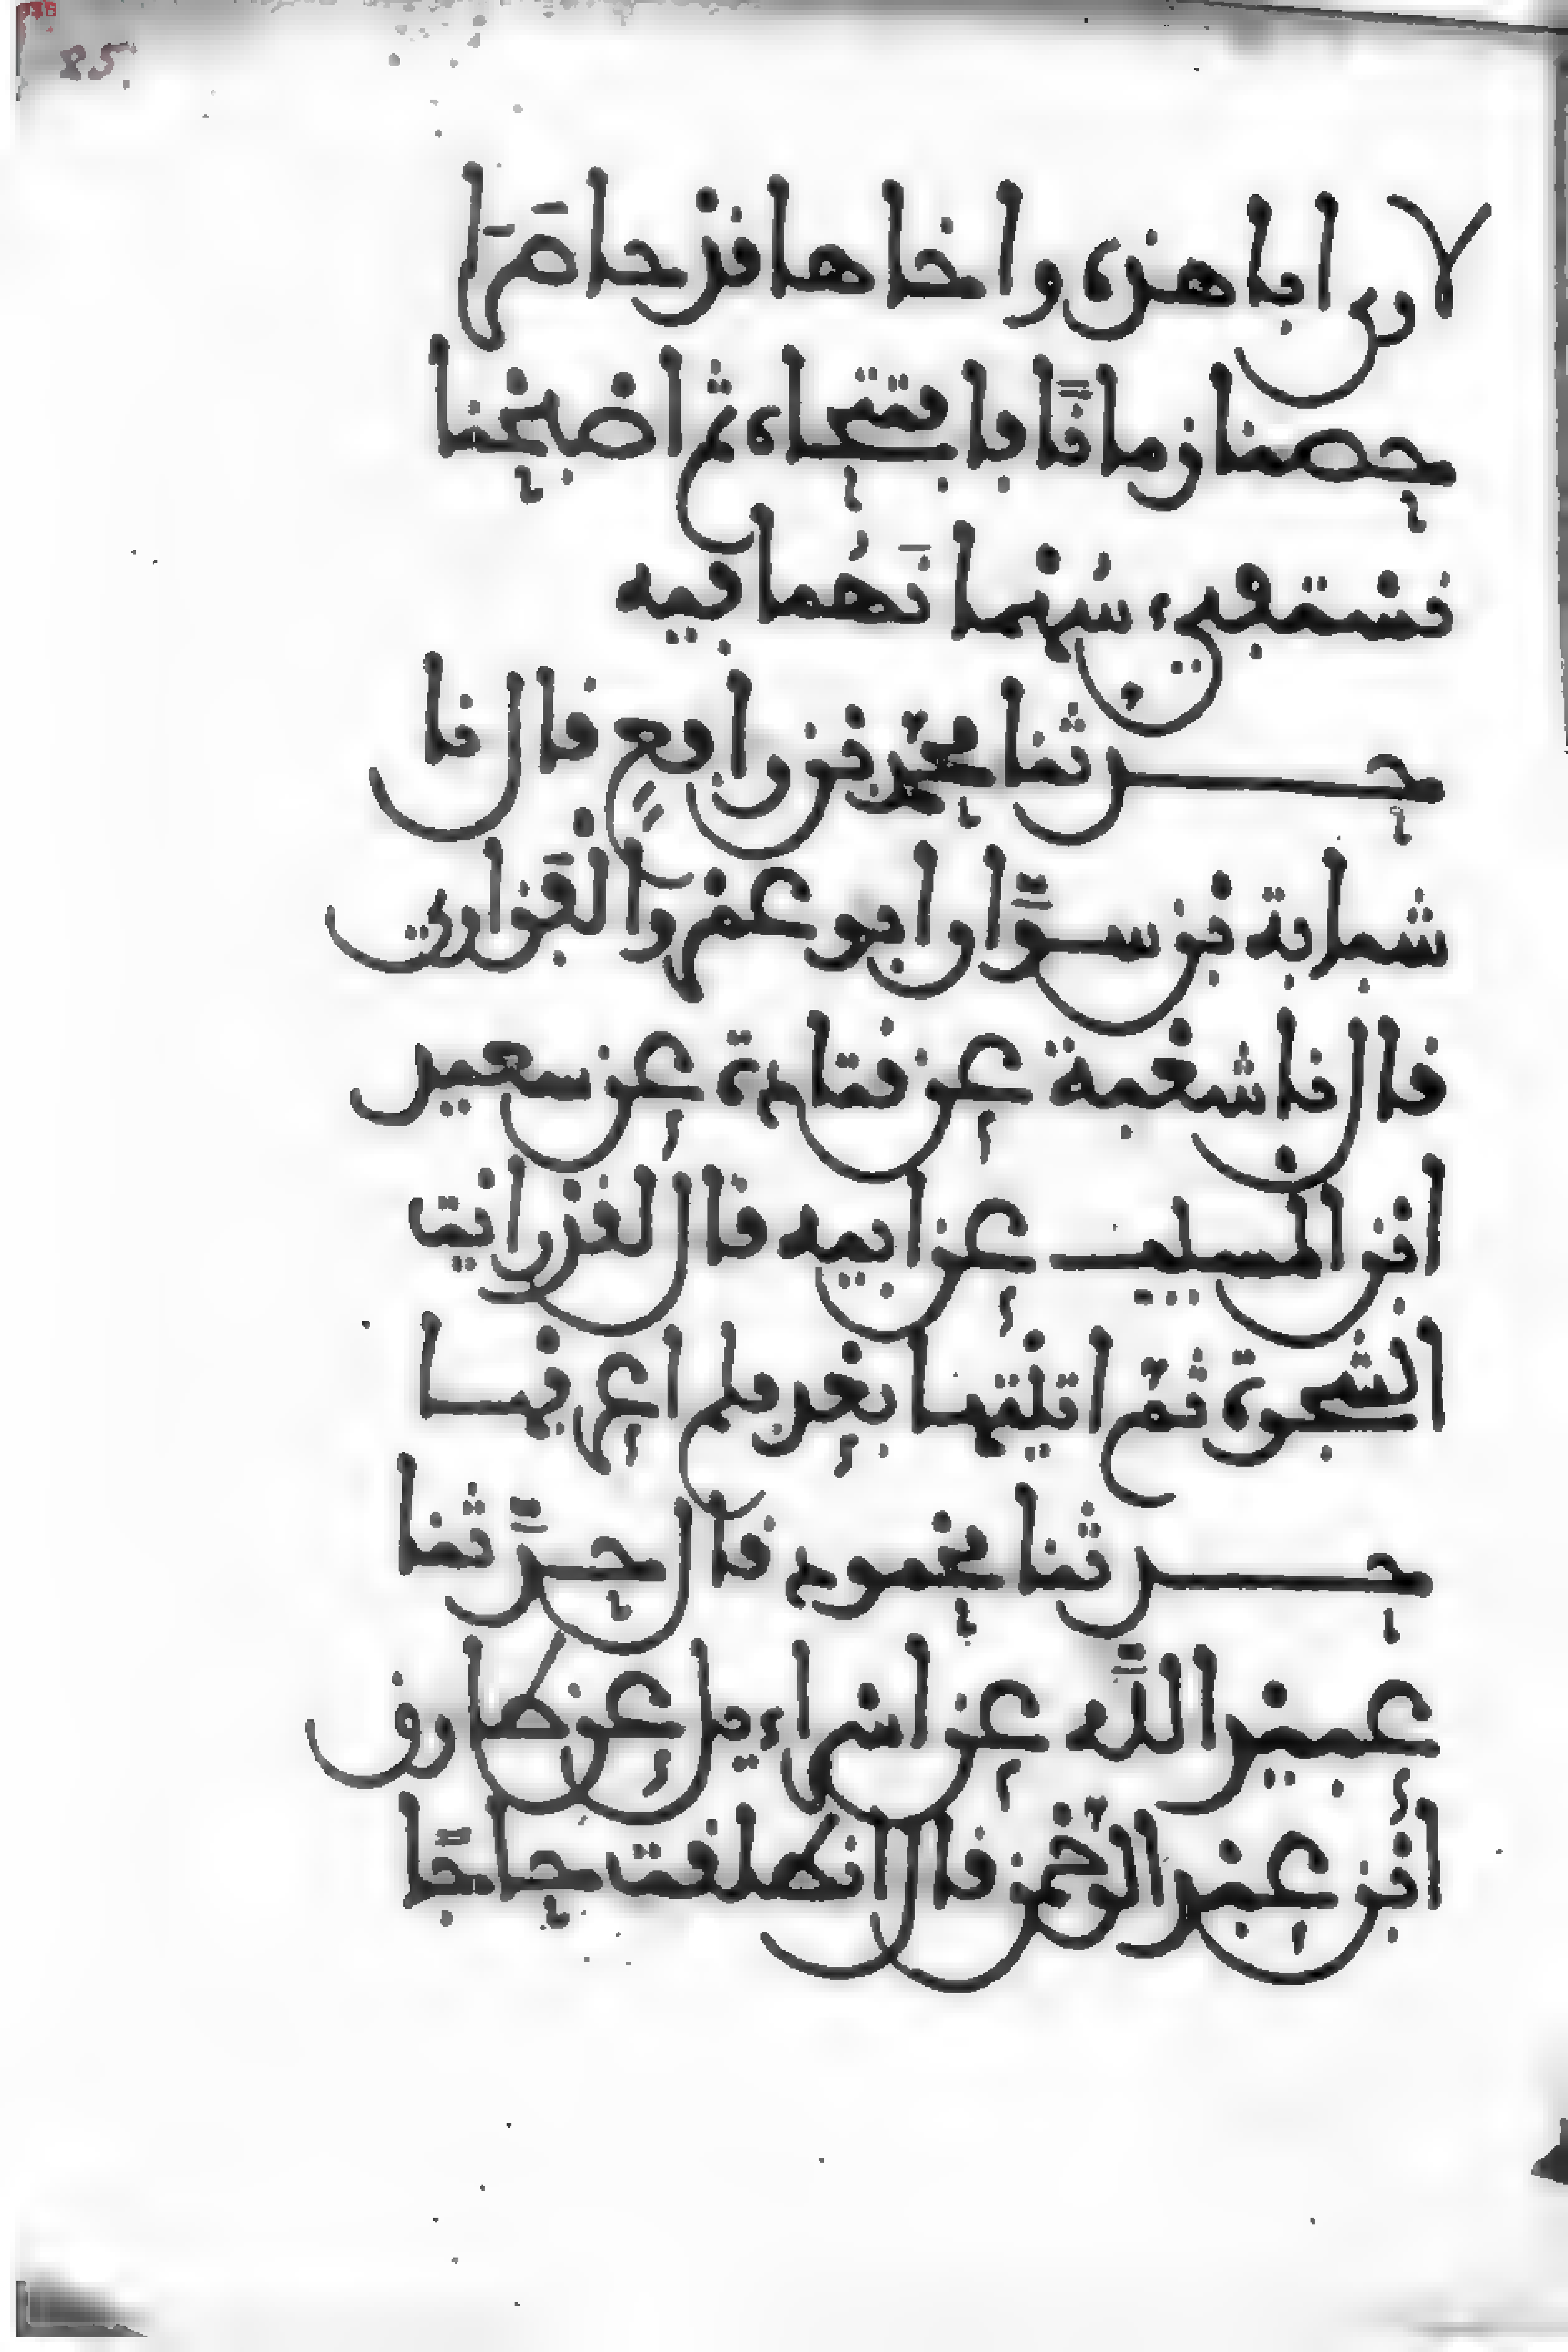 85
لأرى أبا هذه وأخاها قد حاصرا
حصنا زمانا فافتتحاه ثم أصبحنا
نستفيء سهمانهما فيه
حدثنا محمد بن رافع قال نا
شبابة بن سوار أبو عمرو الفزاري
قال نا شعبة عن قتادة عن سعيد
ابن المسيب عن أبيه قال لقد رأيت
الشجرة ثم أتيتها بعد فلم أعرفها
حدثنا محمود قال حدثنا
عبيد الله عن إسراءيل عن طارق
ابن عبد الرحمن قال انطلقت حاجا